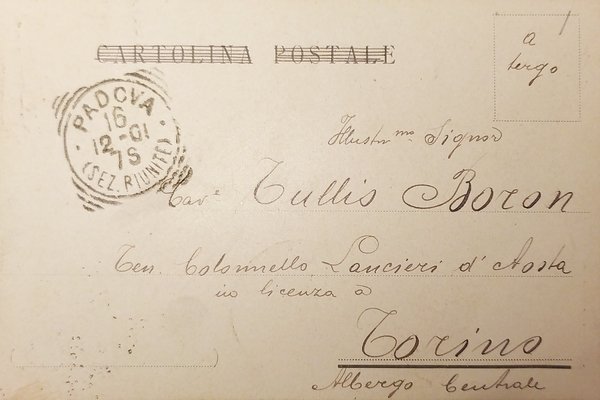 CARTOLINA POSTALE
a
tergo
PADOVA
16
12-01
7S
(SEZ. RIUNITE)
Illustrmo Signor
Cave Tullio Boron
Ten. Colonnello Lancieri d'Aosta
in licenza a
Torino
Albergo Centrale